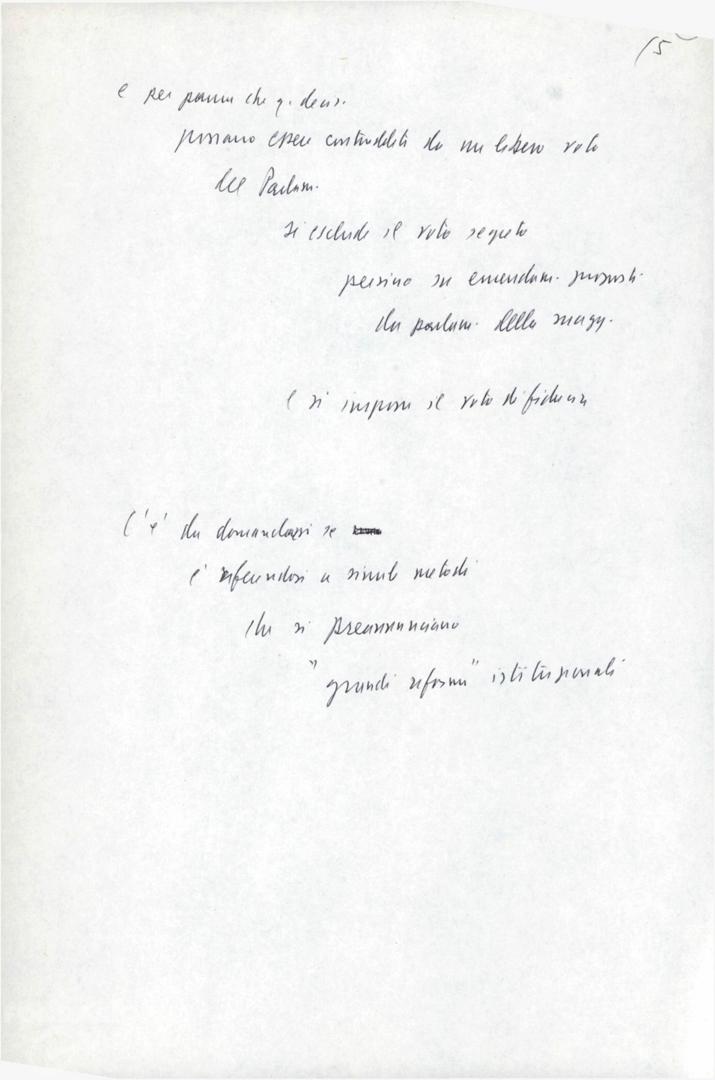 15
e per paura che q. decis.
possano essere contraddetti da un libero voto
del Parlam.
si esclude il voto segreto
persino su emendam. proposti
da parlam. della magg.
e si impone il voto di fiducia
C'è da domandarsi se
è riferendosi a simili metodi
che si preannunciano
"grandi riforme" istituzionali